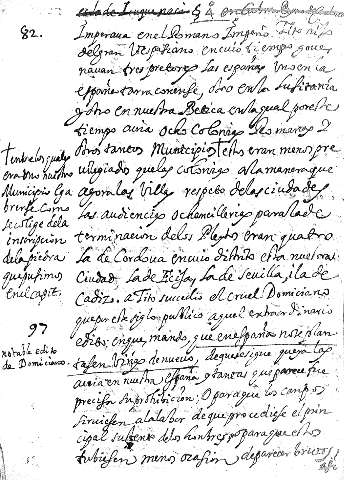 82.
Imperava en el Romano Imperio Tito hijo
del gran Vespasiano en cuio tiempo gover
navan tres pretores las españas uno en la
española tarraconense, otro en la Lusitania
y otro en nuestra Betica en la qual por este
tiempo avia ocho Colonias Romanas y
otros tantos Municipios † estos eran menos pre
vilegiados que las Colonias a la manera que
agora las Villas respeto de las ciudades
las audiencias o chancillerias para la de
terminacion de los Pleytos eran quadro
la de Cordova en cuio distrito esta nuestra
Ciudad. la de Ecija, la de Sevilla, i la de
Cadiz. a Tito sucedio el cruel Domiciano
que por este siglo publico aquel extraordinario
edito, en que mando, que en españa no se plan
tasen viñas de nuevo, de que se sigue que ya las
avia en nuestra españa y tantas que parecia fue
precisa su prohibicion, o para que los campos
sirviesen a la labor de que procediese el prin
cipal sustento de los hombres o para que estos
tubiesen menos ocasion de parecer brutos
† entre los quales
era uno nuestro
Municipio Ega
brense como
se colige de la
inscripcion
de la piedra
que pusimos
en el capit.
97
notable edito
de Domiciano.